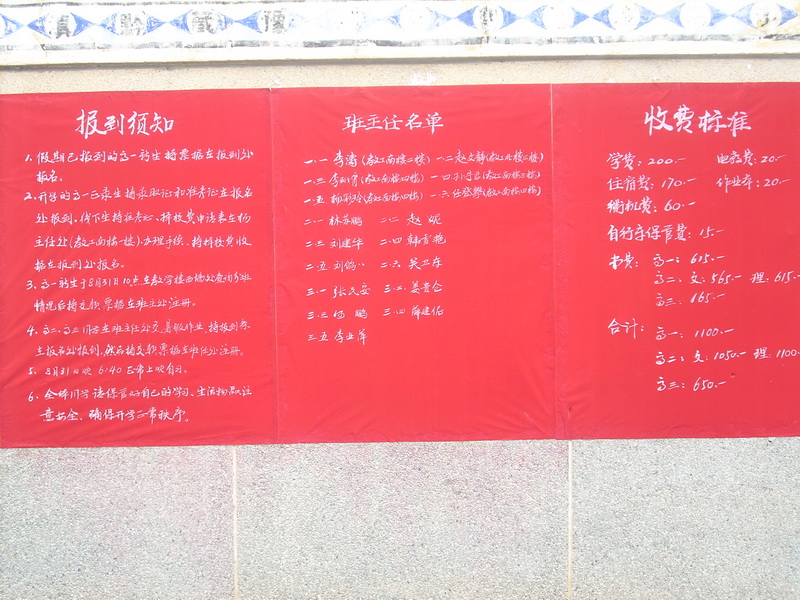 报到须知
1、假期已报到的高一新生持票据在报到处
报名。
2、开学的高一 录生持录取证和准考证在报名
处报到,线下生持准考证、择校费申请表在杨
主任处(教工南楼一楼)办理手续、持择校费收
据在报到处报名。
3、高一新生于8月31日10点在教学楼西侧处查询分班
情况后持交款票据在班主任处注册。
4、高二、高三同学在班主任处交暑假作业,
主报名处报到,然后持交款票据在班主任处注册。
5、8月31日晚6:40正常上晚自习。
6、全体同学请保管好自己的学习、生活物品,注
意安全、确保开学正常秩序。
班主任名单
一.一 李涛(教工南楼二楼) 一.二 赵文静(教工北楼二楼)
一.三 (教工南楼四楼) 一.四 (教工南楼三楼)
一.五 (教工南楼四楼) 一.六 任登攀(教工南楼四楼)
二.一 林苏鹏 二.二 赵妮
二.三 刘建华 二.四 韩青艳
二.五 刘 二.六 吴卫东
三.一 张民安 三.二 姜贵仓
三.三 伍鹏 三.四 薛建佑
三.五 李业萍
收费标准
学费:200.— 电教费:20.—
住宿费:170.— 作业本:20.—
微机费:60.—
自行车保管费:15.—
书费:高一:615.—
高二、文:565.— 理:615.—
高三:165.—
合计:高一:1100.—
高二、文:1050.— 理:1100.—
高三:650.—